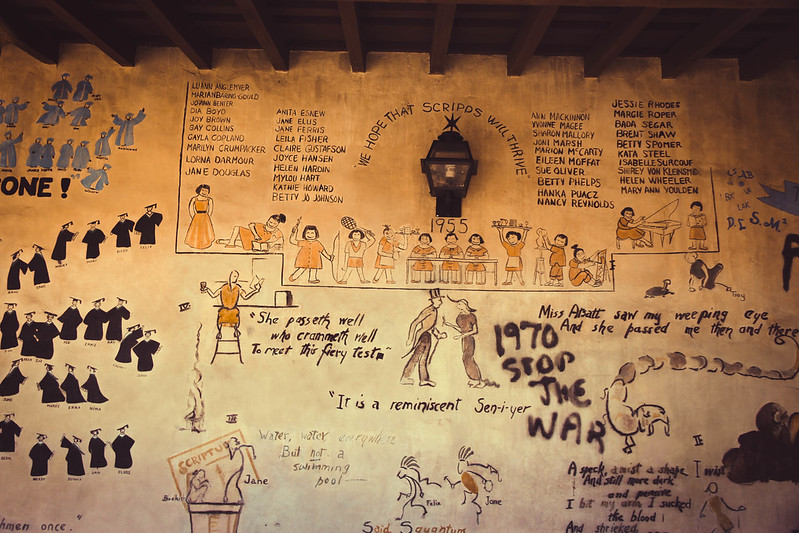 ONE!
LUANN ANGLEMYER
MARIAN BARING-GOULD
JOANN BENTER
DIA BOYD
JOY BROWN
GAY COLLINS
GAYLA COPLAND
MARILYN CRUMPACKER
LORNA DARMOUR
JANE DOUGLAS
ANITA ESNEW
JANE ELLIS
JANE FERRIS
LEILA FISHER
CLAIRE GUSTAFSON
JOYCE HANSEN
HELEN HARDIN
MYLOU HART
KATHIE HOWARD
BETTY JO JOHNSON
WE HOPE THAT SCRIPPS WILL THRIVE
1955
ANN MACKINNON
YVONNE MAGEE
SHARON MALLORY
JONI MARSH
MARION McCARTY
EILEEN MOFFAT
SUE OLIVER
BETTY PHELPS
HANKA PUACZ
NANCY REYNOLDS
JESSIE RHODES
MARGIE ROPER
BADA SEGAR
BRENT SHAW
BETTY SPOMER
KATA STEEL
ISABELLE SURCOUF
SHIREY VON KLEINSMID
HELEN WHEELER
MARY ANN YOULDEN
IV
"She passeth well
who crammeth well
To meet this fiery test"
"It is a reminiscent Sen-i-yer
1970
STOP
THE
WAR
Miss Abatt saw my weeping eye
And she passed me then and there
VII
SCRIPTU
Jane
Water, water everywhere
But not a
swimming
pool
Felix
Jane
Said Squantum
VI
A speck, a mist a shape
And still more dark
and penzive
I bit my arm I sucked
the blood!
And shrieked
I wist
hmen once."